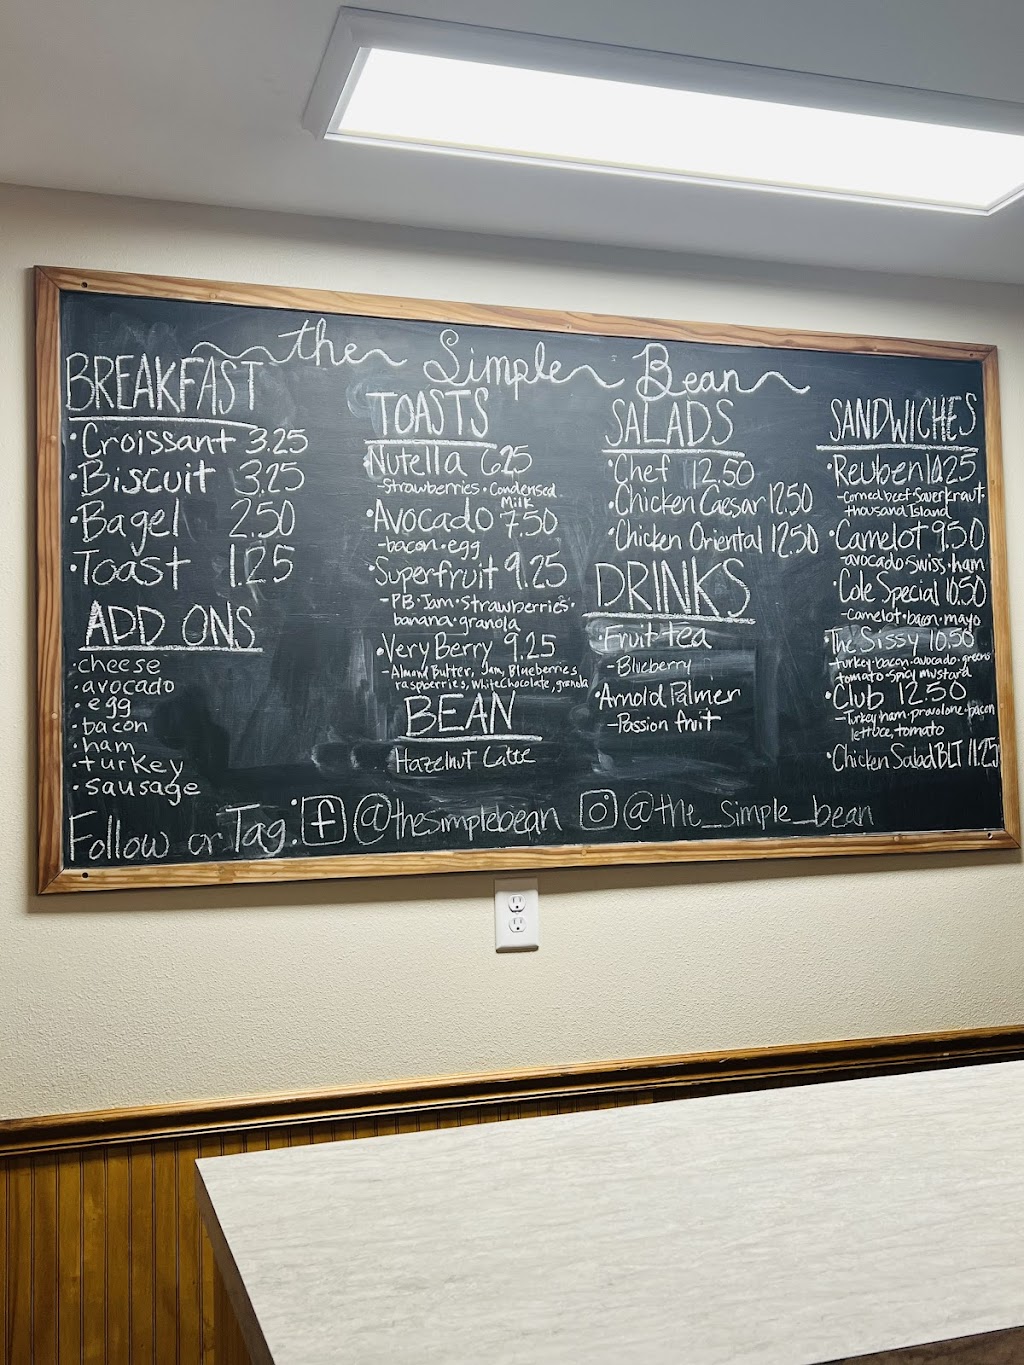 the Simple Bean
BREAKFAST
• Croissant 3.25
• Biscuit 3.25
• Bagel 2.50
• Toast 1.25
ADD ONS
• cheese
• avocado
• egg
• bacon
• ham
• turkey
• sausage
TOASTS
• Nutella 6.25
- Strawberries • Condensed
Milk
• Avocado 7.50
- bacon • egg
• Superfruit 9.25
- PB • Jam • Strawberries •
banana • granola
• Very Berry 9.25
- Almond Butter, Jam, Blueberries
raspberries, White Chocolate, granola
BEAN
Hazelnut Latte
SALADS
• Chef 12.50
• Chicken Caesar 12.50
• Chicken Oriental 12.50
DRINKS
• Fruit tea
- Blueberry
• Arnold Palmer
- Passion fruit
SANDWICHES
• Reuben 10.25
- corned beef • Sauerkraut •
thousand Island
• Camelot 9.50
avocado • swiss • ham
• Cole Special 10.50
- camelot • bacon • mayo
• The Sissy 10.50
- turkey • bacon • avocado • greens
tomato • spicy mustard
• Club 12.50
- Turkey • ham • provolone • bacon
lettuce, tomato
• Chicken Salad BLT 11.25
Follow or Tag: f @thesimplebean @the_simple_bean